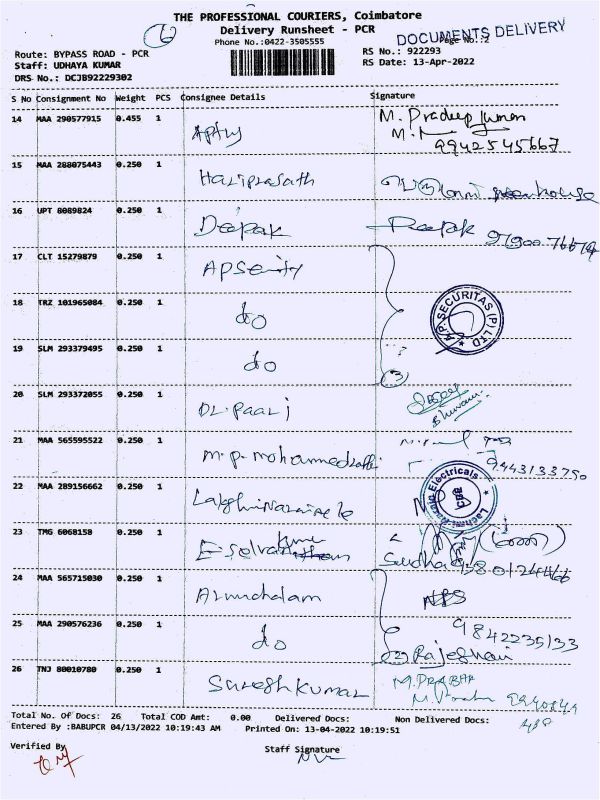 THE PROFESSIONAL COURIERS, Coimbatore
6
Delivery Runsheet - PCR
DOCUMENTS DELIVERY
Phone No.:0422-3505555
Page No.:2
Route: BYPASS ROAD - PCR
RS No.: 922293
Staff: UDHAYA KUMAR
RS Date: 13-Apr-2022
DRS No.: DCJB92229302
S No Consignment No Weight PCS Consignee Details Signature
14 MAA 290577915 0.455 1 M. Pradeep kumar
9942545667
15 MAA 288075443 0.250 1 Hariprasath
16 UPT 8089824 0.250 1 Deepak Deepak
17 CLT 15279879 0.250 1
A.P. SECURITAS (P) LTD
18 TRZ 101965084 0.250 1 do
19 SLM 293379495 0.250 1 do
3
20 SLM 293372055 0.250 1
21 MAA 565595522 0.250 1 M.P. Mohammed
9443133750
22 MAA 289156662 0.250 1
Electricals
23 TMG 6068158 0.250 1 E. Selva
Sudha
24 MAA 565715030 0.250 1 Arunachalam
25 MAA 290576236 0.250 1 do 9842235133
26 TNJ 80010780 0.250 1 Suresh Kumar M. PRABAR
Total No. Of Docs: 26 Total COD Amt: 0.00 Delivered Docs: Non Delivered Docs:
Entered By :BABUPCR 04/13/2022 10:19:43 AM Printed On: 13-04-2022 10:19:51
Verified By Staff Signature